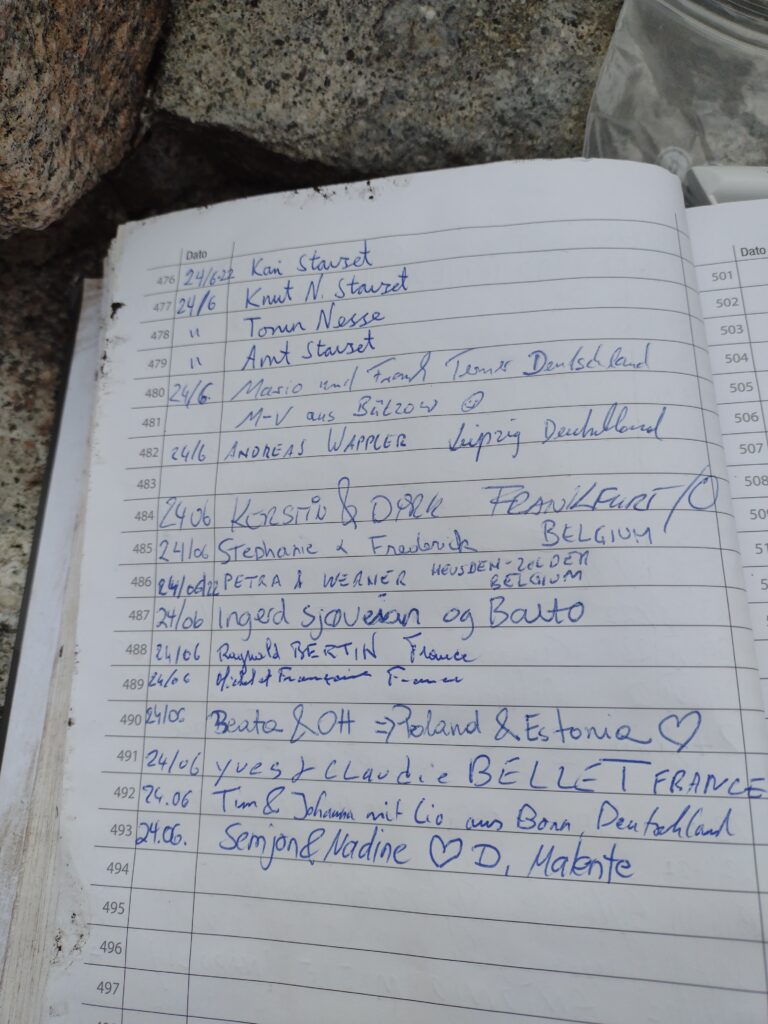 Dato
476 24/6-22 Kari Stavset
477 24/6 Knut N. Stavset
478 " Torun Nesse
479 " Arnt Stavset
480 24/6. Mario und Deutschland
481 M-V aus Bützow ☺
482 24/6 ANDREAS WAPPLER Leipzig Deutschland
483
484 24 06 KERSTIN & DIRK FRANKFURT/O
485 24/06 Stephanie & Frederick BELGIUM
486 24/06/22 PETRA & WERNER HEUSDEN-ZOLDER
BELGIUM
487 24/06 Ingerd Sjøveian og Balto
488 24/06 BERTIN France
489 24/06 Michel et Françoise France
490 24/06 Beata & Ott => Poland & Estonia ♡
491 24/06 Yves & Claudie BELLET FRANCE
492 24.06 Tim & Johanna mit Lio aus Bonn, Deutschland
493 24.06. Semjon & Nadine ♡ D, Malente
494
495
496
497
Dato
501
502
503
504
505
506
507
508